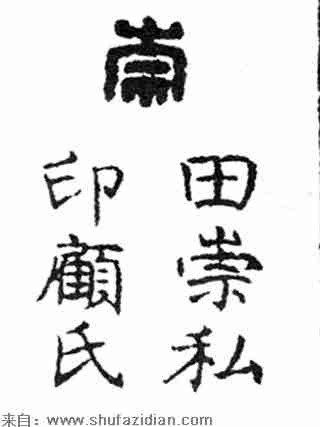 崇
田崇私
印顧氏
来自：www.shufazidian.com